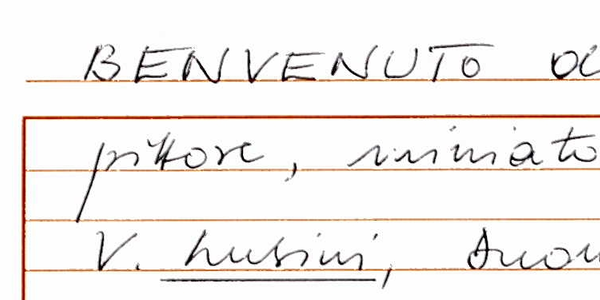 BENVENUTO
pittore, miniato
V. Lusini,